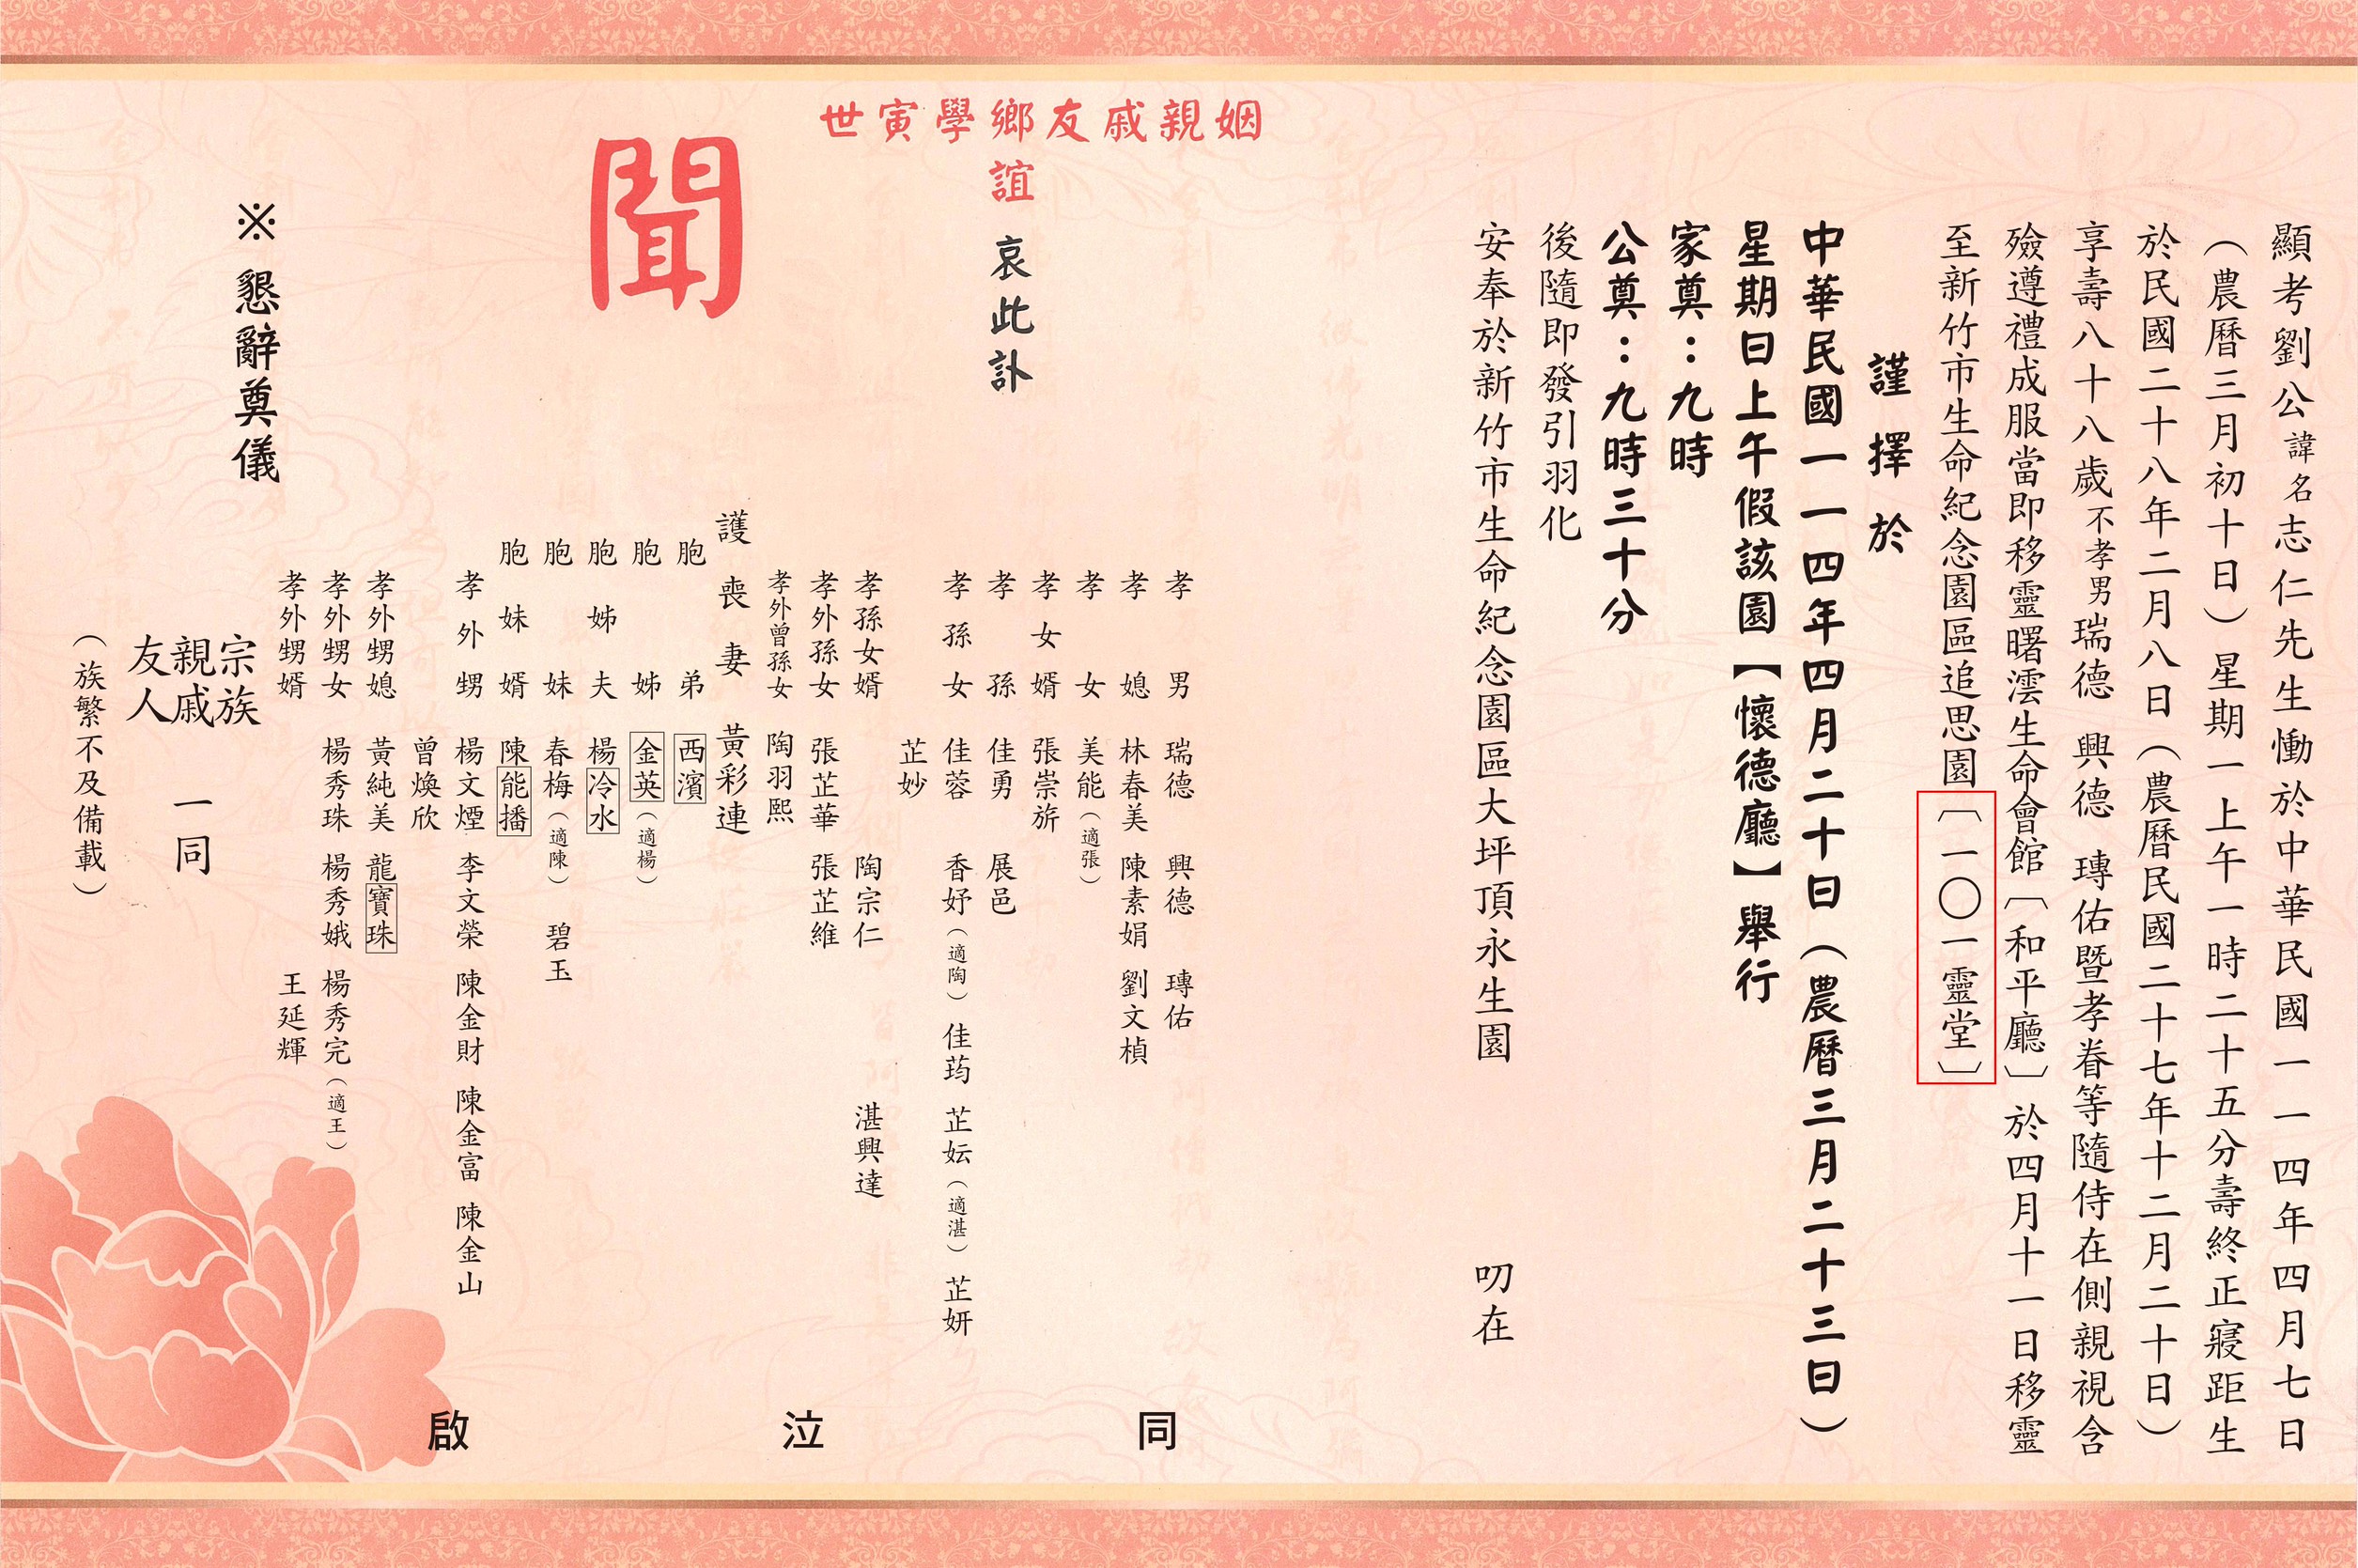 顯考劉公諱名志仁先生慟於中華民國一一四年四月七日
（農曆三月初十日）星期一上午一時二十五分壽終正寢距生
於民國二十八年二月八日（農曆民國二十七年十二月二十日）
享壽八十八歲不孝男瑞德 興德 瑼佑暨孝眷等隨侍在側親視含
殮遵禮成服當即移靈曙澐生命會館〔和平廳〕於四月十一日移靈
至新竹市生命紀念園區追思園〔一〇一靈堂〕
謹擇於
中華民國一一四年四月二十日（農曆三月二十三日）
星期日上午假該園【懷德廳】舉行
家奠：九時
公奠：九時三十分
後隨即發引羽化
安奉於新竹市生命紀念園區大坪頂永生園 叨在
姻親戚友鄉學寅世
誼 哀此訃
聞
孝男 瑞德 興德 瑼佑
孝媳 林春美 陳素娟 劉文楨
孝女 美能（適張）
孝女婿 張崇旂
孝孫 佳勇 展邑
孝孫女 佳蓉 香妤（適陶） 佳筠 芷妘（適湛） 芷妍
芷妙
孝孫女婿 陶宗仁 湛興達
孝外孫女 張芷華 張芷維
孝外曾孫女 陶羽熙
護喪妻 黃彩連
胞弟 西濱
胞姊 金英（適楊）
胞姊夫 楊冷水
胞妹 春梅（適陳） 碧玉
胞妹婿 陳能播
孝外甥 楊文煙 李文榮 陳金財 陳金富 陳金山
曾煥欣
孝外甥媳 黃純美 龍寶珠
孝外甥女 楊秀珠 楊秀娥 楊秀完（適王）
孝外甥婿 王延輝
宗族
親戚 一同
友人
（族繁不及備載）
同泣啟
※懇辭奠儀